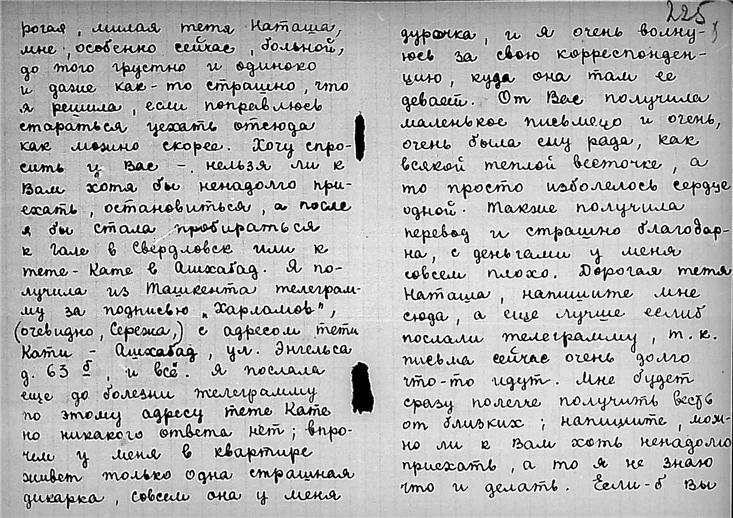 рогая, милая тетя Наташа,
мне, особенно сейчас, больной,
до того грустно и одиноко
и даже как-то страшно, что
я решила, если поправлюсь
стараться уехать отсюда
как можно скорее. Хочу спро-
сить у Вас – нельзя ли к
Вам хотя бы ненадолго при-
ехать, остановиться, а после
я бы стала пробираться
к Гале в Свердловск или к
тете-Кате в Ашхабад. Я по-
лучила из Ташкента телеграм-
му за подписью „Харламов",
(очевидно, Сережа,) с адресом тети
Кати – Ашхабад, ул. Энгельса
д. 63 б, и всё. Я послала
еще до болезни телеграмму
по этому адресу тете Кате
но никакого ответа нет; впро-
чем у меня в квартире
живет только одна страшная
дикарка, совсем она у меня
225
дурочка, и я очень волну-
юсь за свою корреспонден-
цию, куда она там ее
девает. От Вас получила
маленькое письмецо и очень,
очень была ему рада, как
всякой теплой весточке, а
то просто изболелось сердце
одной. Также получила
перевод и страшно благодар-
на, с деньгами у меня
совсем плохо. Дорогая тетя
Наташа, напишите мне
сюда, а еще лучше еслиб
послали телеграмму, т.к.
письма сейчас очень долго
что-то идут. Мне будет
сразу полегче получить весть
от близких; напишите, мож-
но ли к Вам хоть ненадолго
приехать, а то я не знаю
что и делать. Если-б Вы